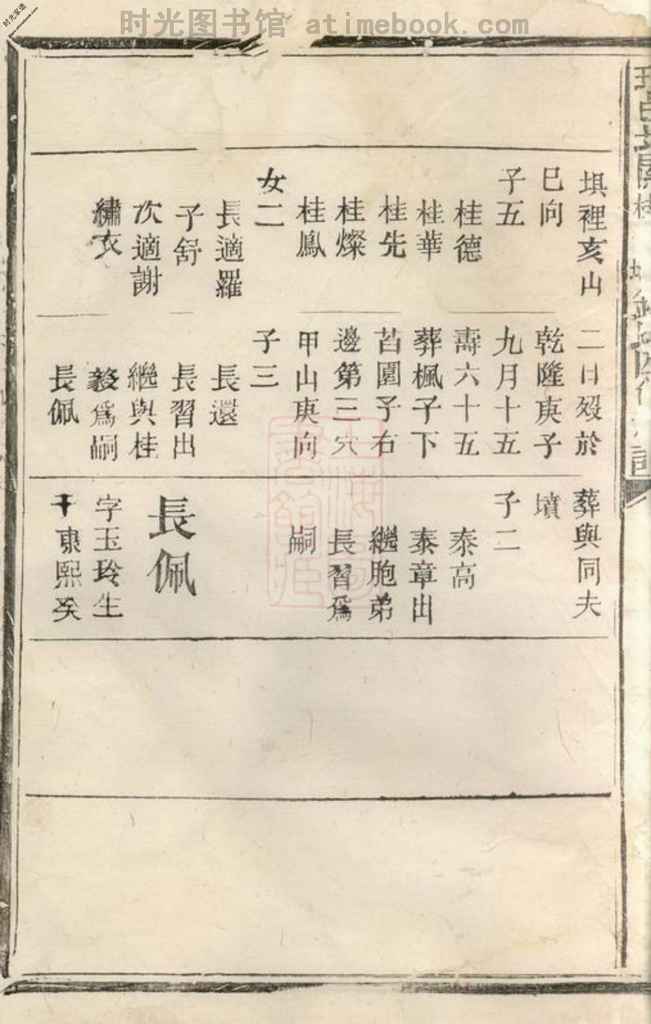 时光图书馆 - atimebook.com
埧裡亥山
巳向
子五
桂德
桂華
桂先
桂燦
桂鳳
女二
長適羅
子舒
次適謝
繡衣
二日歿於
乾隆庚子
九月十五
壽六十五
葬楓子下
苦園子右
邊第三穴
甲山庚向
子三
長還
長習出
繼與桂
毅爲嗣
長佩
葬與同夫
墳
子二
泰高
泰章出
繼胞弟
長習爲
嗣
長佩
字玉玲生
于康熙癸